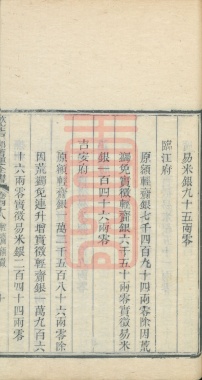 易米銀九十五兩零
臨江府
原額輕齎銀七千四百九十四兩零除因荒
蠲免實徵輕齎銀六千五十兩零實徵易米
銀一百四十六兩零
吉安府
原額輕齎銀一萬二千五百八十六兩零除
因荒蠲免連升增實徵輕齎銀一萬九百六
十六兩零實徵易米銀二百四十四兩零